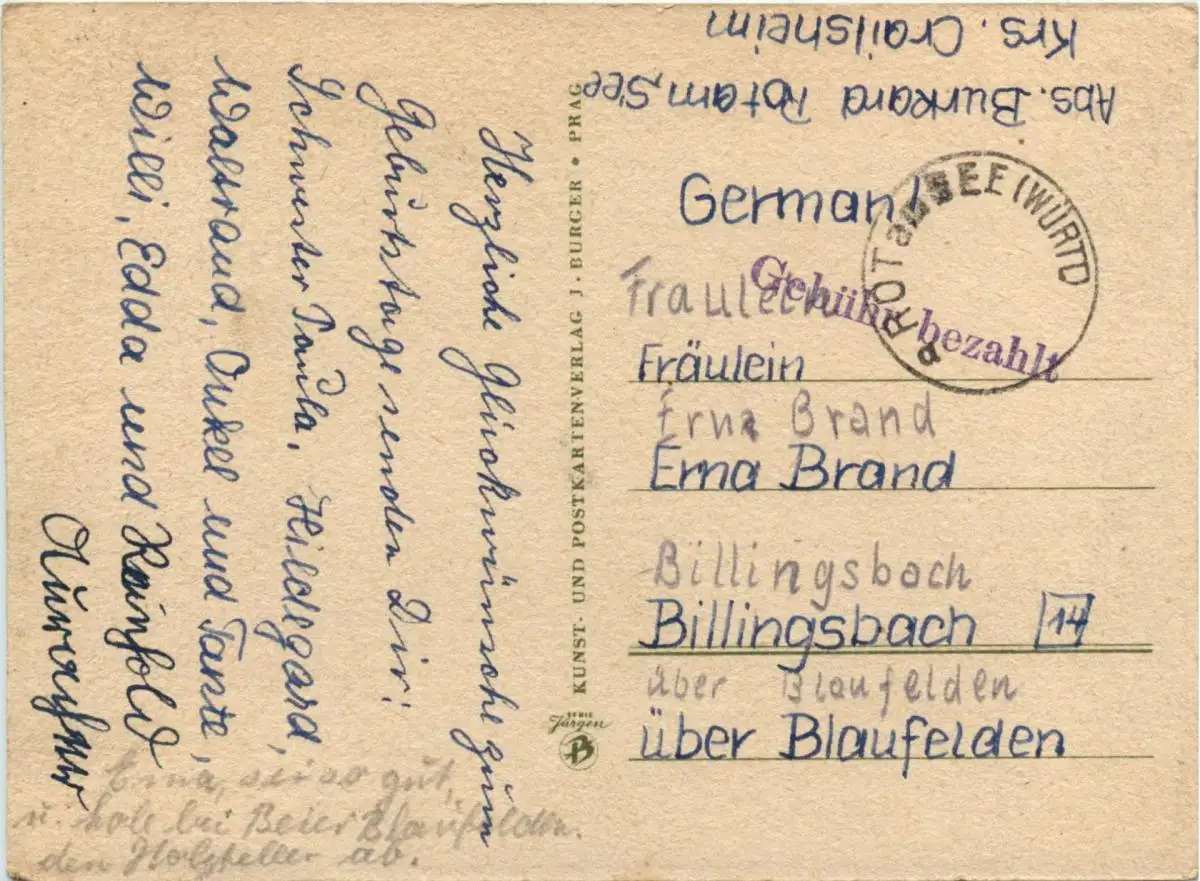 Herzliche Glückwünsche zum
Geburtstage senden Dir:
Schwester Paula, Hildegard,
Waltraud, Onkel und Tante,
Willi, Edda und Reinhold
Erna, sei so gut,
u. hole bei Beier Blaufelden.
den Holzteller ab.
KUNST- UND POSTKARTENVERLAG J. BURGER • PRAG
SERIE
Jürgen
B
Abs. Burkard Rotam See
Krs. Crailsheim
German
ROT am SEE (WÜRTT)
Gebühr bezahlt
Fräulein
Fräulein
Erna Brand
Erna Brand
Billingsbach
Billingsbach 14
über Blaufelden
über Blaufelden